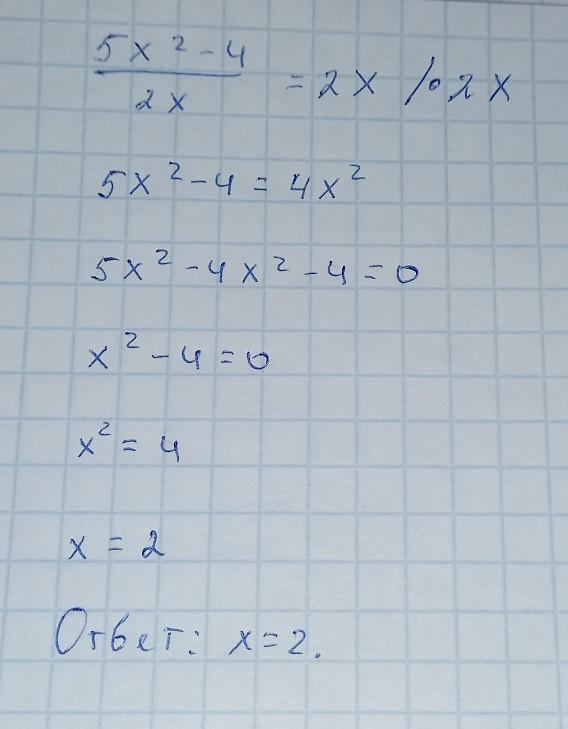 (5x² - 4)/(2x) = 2x /• 2x
5x² - 4 = 4x²
5x² - 4x² - 4 = 0
x² - 4 = 0
x² = 4
x = 2
Ответ: x = 2.